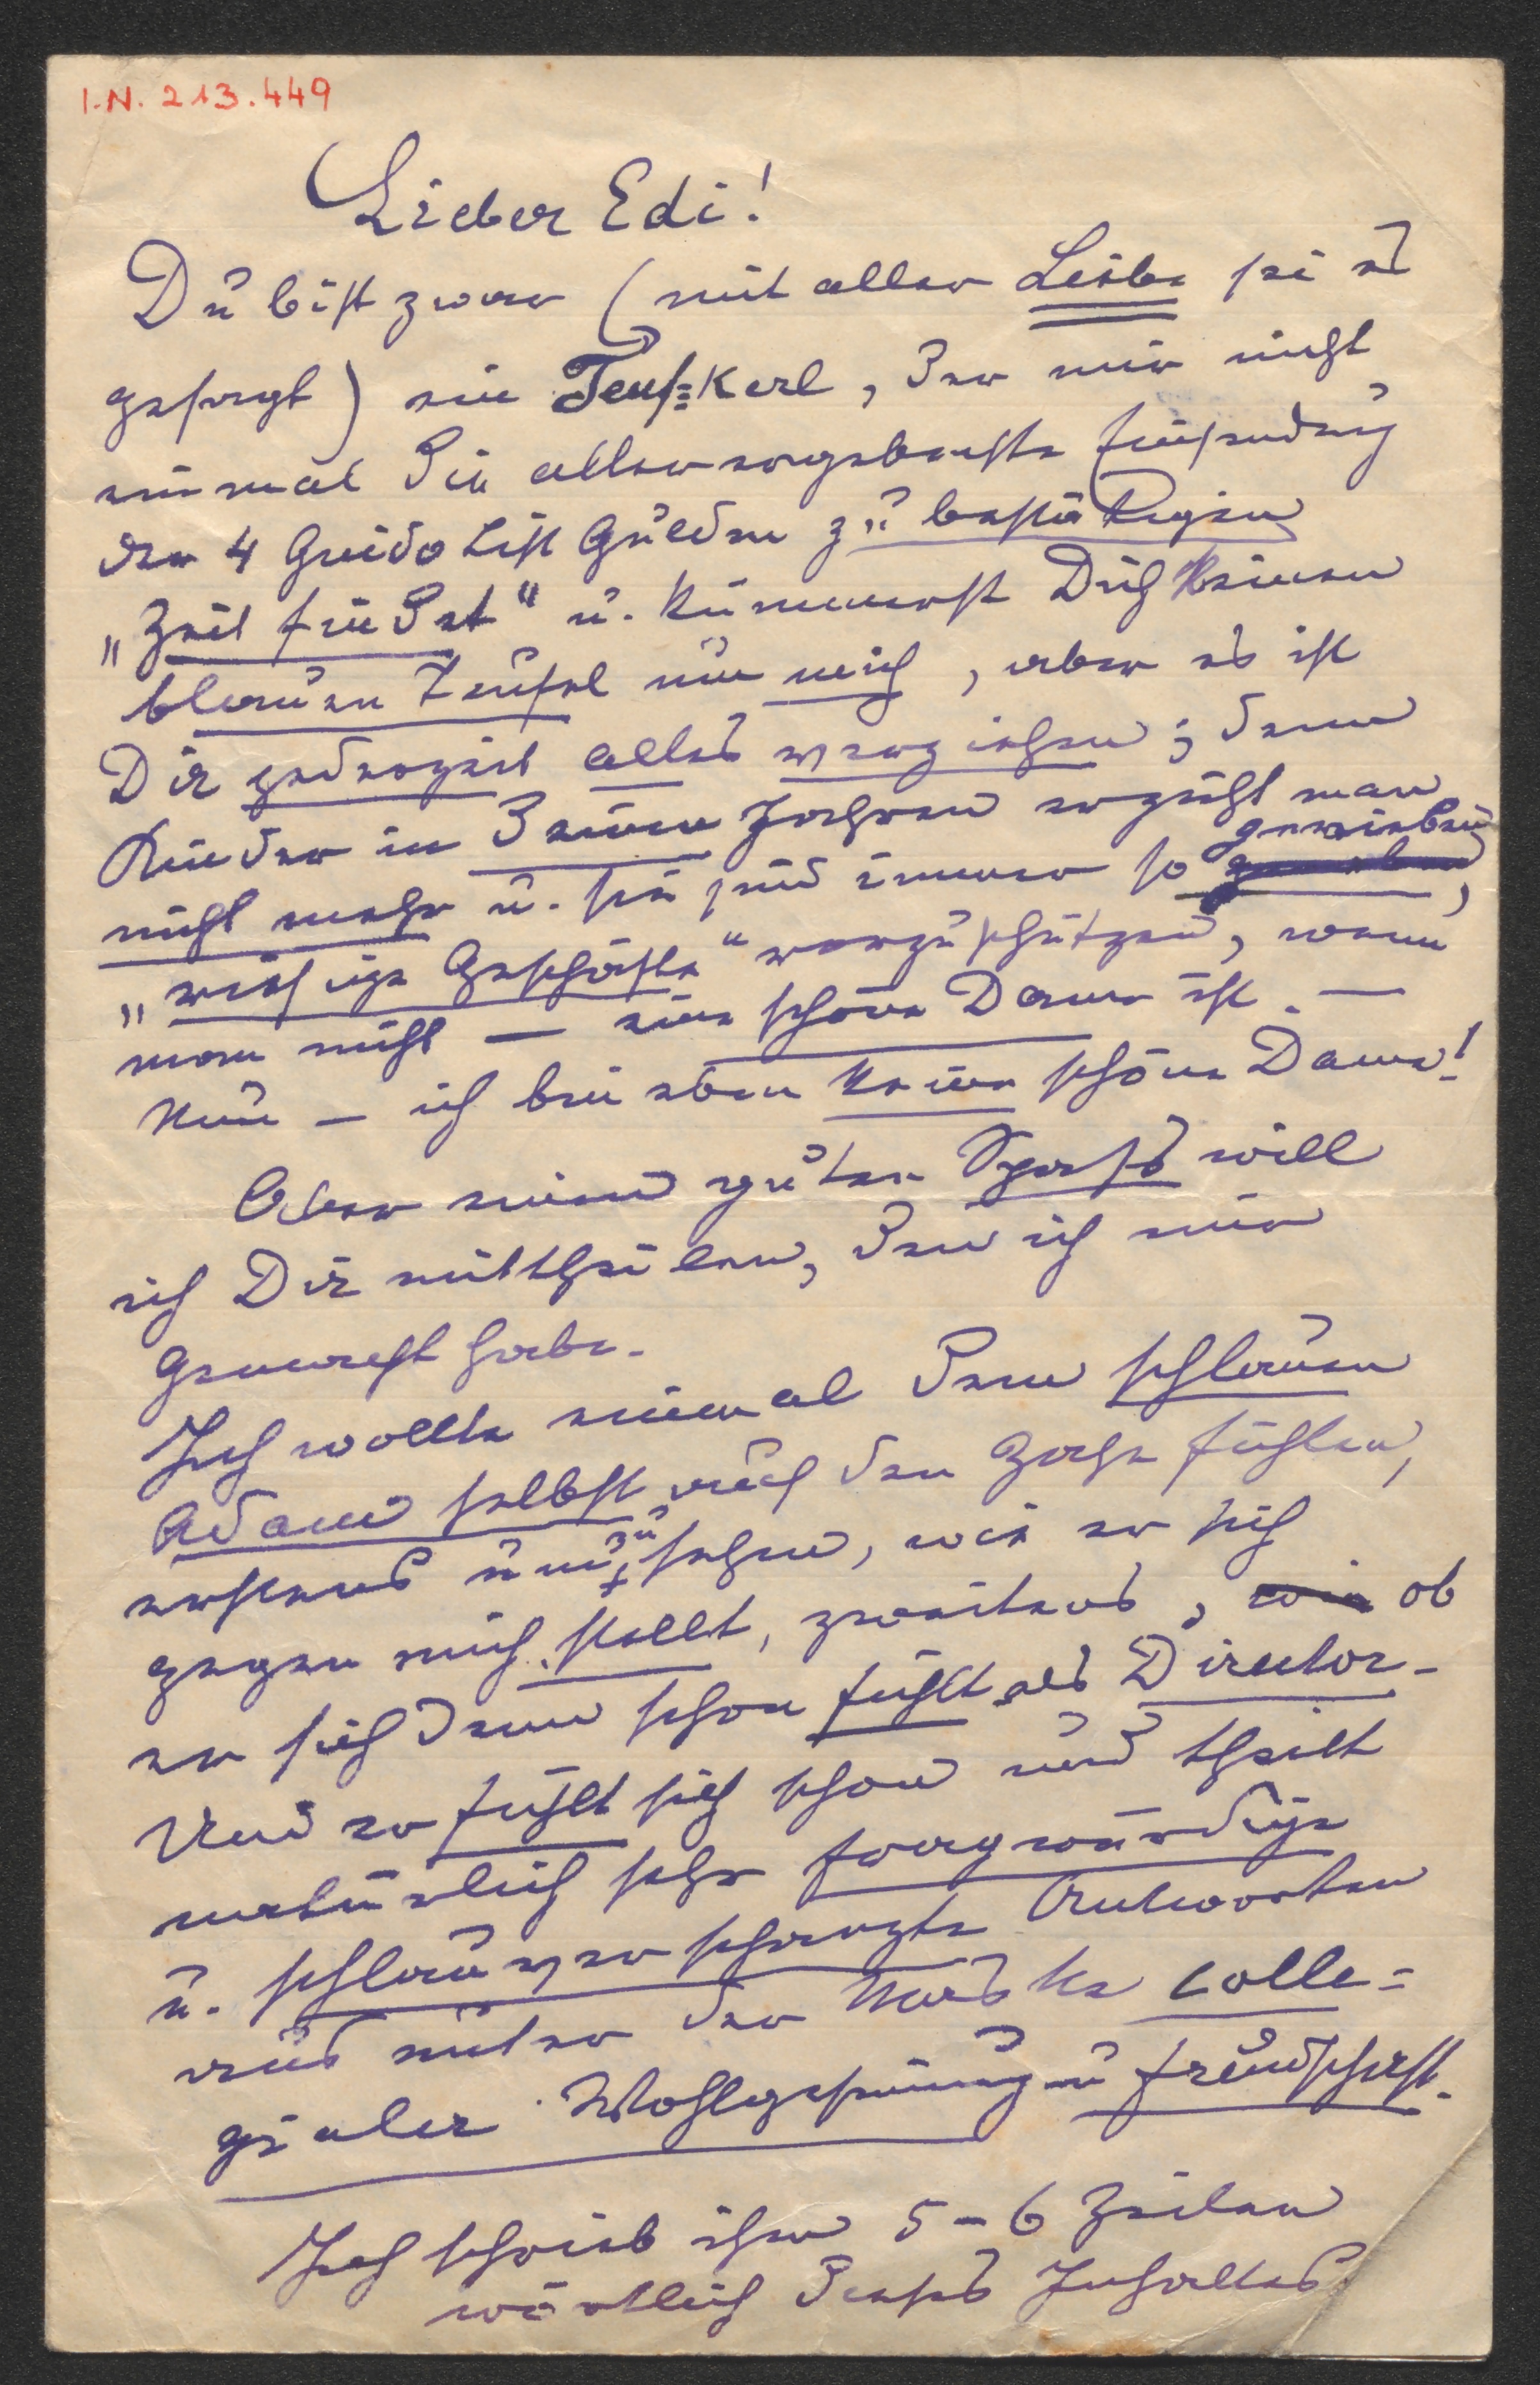 I.N. 213.449
Lieber Edi!
Du bist zwar (mit aller Liebe sei es
gesagt) ein Teuf=Kerl, der mir nicht
einmal die allerergebenste Einsendung
der 4 Guido List Gulden zu bestätigen
„Zeit findet“ u. kümmerst Dich keinen
blauen Teufel um mich, aber es ist
Dir jederzeit alles verziehen; denn
Kinder in Deinen Jahren erzieht man
nicht mehr u. sie sind immer so gerieben,
„wichtige Geschäfte“ vorzuschützen, wenn
man nicht — eine schöne Dame ist. —
Nun — ich bin eben keine schöne Dame!
Aber einen guten Spass will
ich Dir mittheilen, den ich mir
gemacht habe.
Ich wollte einmal dem schlauen
Adam selbst auf den Zahn fühlen,
erstens um zu sehen, wie er sich
gegen mich stellt, zweitens, ob
er sich denn schon fühlt als Director.
Und er fühlt sich schon und theilt
natürlich sehr fragwürdige
u. schlau verschanzte Antworten
aus unter der Maske colle=
gialer Wohlgesinnung u Freundschaft.
Ich schrieb ihm 5–6 Zeilen
wörtlich dieses Inhaltes